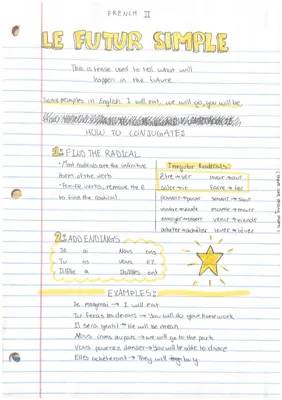 FRENCH II
LE FUTUR SIMPLE
This a tense used to tell what will
happen in the future
Some examples in English: I will eat, we will go, you will be
HOW TO CONJUGATE:
1: FIND THE RADICAL
• Most radicals are the infinitive
form of the verb
• For -re verbs, remove the e
to find the radical
Irregular Radicals:
Être → ser avoir → aur
aller → ir faire → fer
pouvoir → pour savoir → saur
vouloir → voudr mourir → mourr
envoyer → enverr venir → viendr
acheter → achèter lever → lèver
2: ADD ENDINGS
Je ai Nous ons
Tu as Vous ez
Il/Elle a Ils/Elles ont
EXAMPLES:
Je mangerai → I will eat
Tu feras tes devoirs → You will do your homework
Il sera gentil → He will be
Nous irons au parc → we will go to the park
Vous pourrez danser → You will be able to dance
Elles achèteront → They will buy